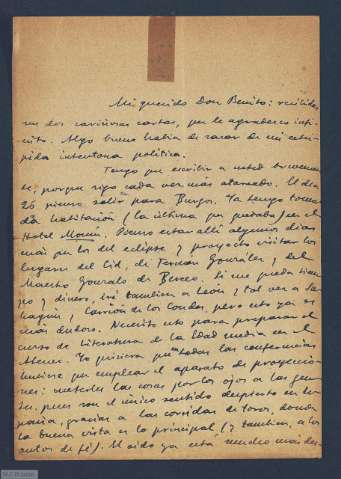 Mi querido Don Benito: recibidas
sus dos cariñosas cartas, que le agradezco infi-
nito. Algo bueno había de sacar de mi estú-
pida intentona política.
Tengo que escribir a usted brevemen-
te, porque sigo cada vez más atareado. El día
26 pienso salir para Burgos. Ya tengo toma-
da habitación (la última que quedaba) en el
Hotel Monín. Pienso estar allí algunos días
más por los del eclipse y proyecto visitar los
lugares del Cid, de Fernán González y del
Maestro Gonzalo de Berceo. Si me queda tiem-
po y dinero, iré también a León, y tal vez a Sa-
hagún, y Carrión de los Condes, pero esto ya es
más dudoso. Necesito esto para preparar el
curso de Literatura de la Edad media en el
Ateneo. Yo quisiera que todas las conferencias
hubiese que emplear el aparato de proyeccio-
nes: meterles las cosas por los ojos a las gen-
tes, pues son el único sentido despierto en Es-
paña, gracias a las corridas de toros, donde
la buena vista es lo principal (y también, a los
autos de fe). El oído ya está mucho más de-